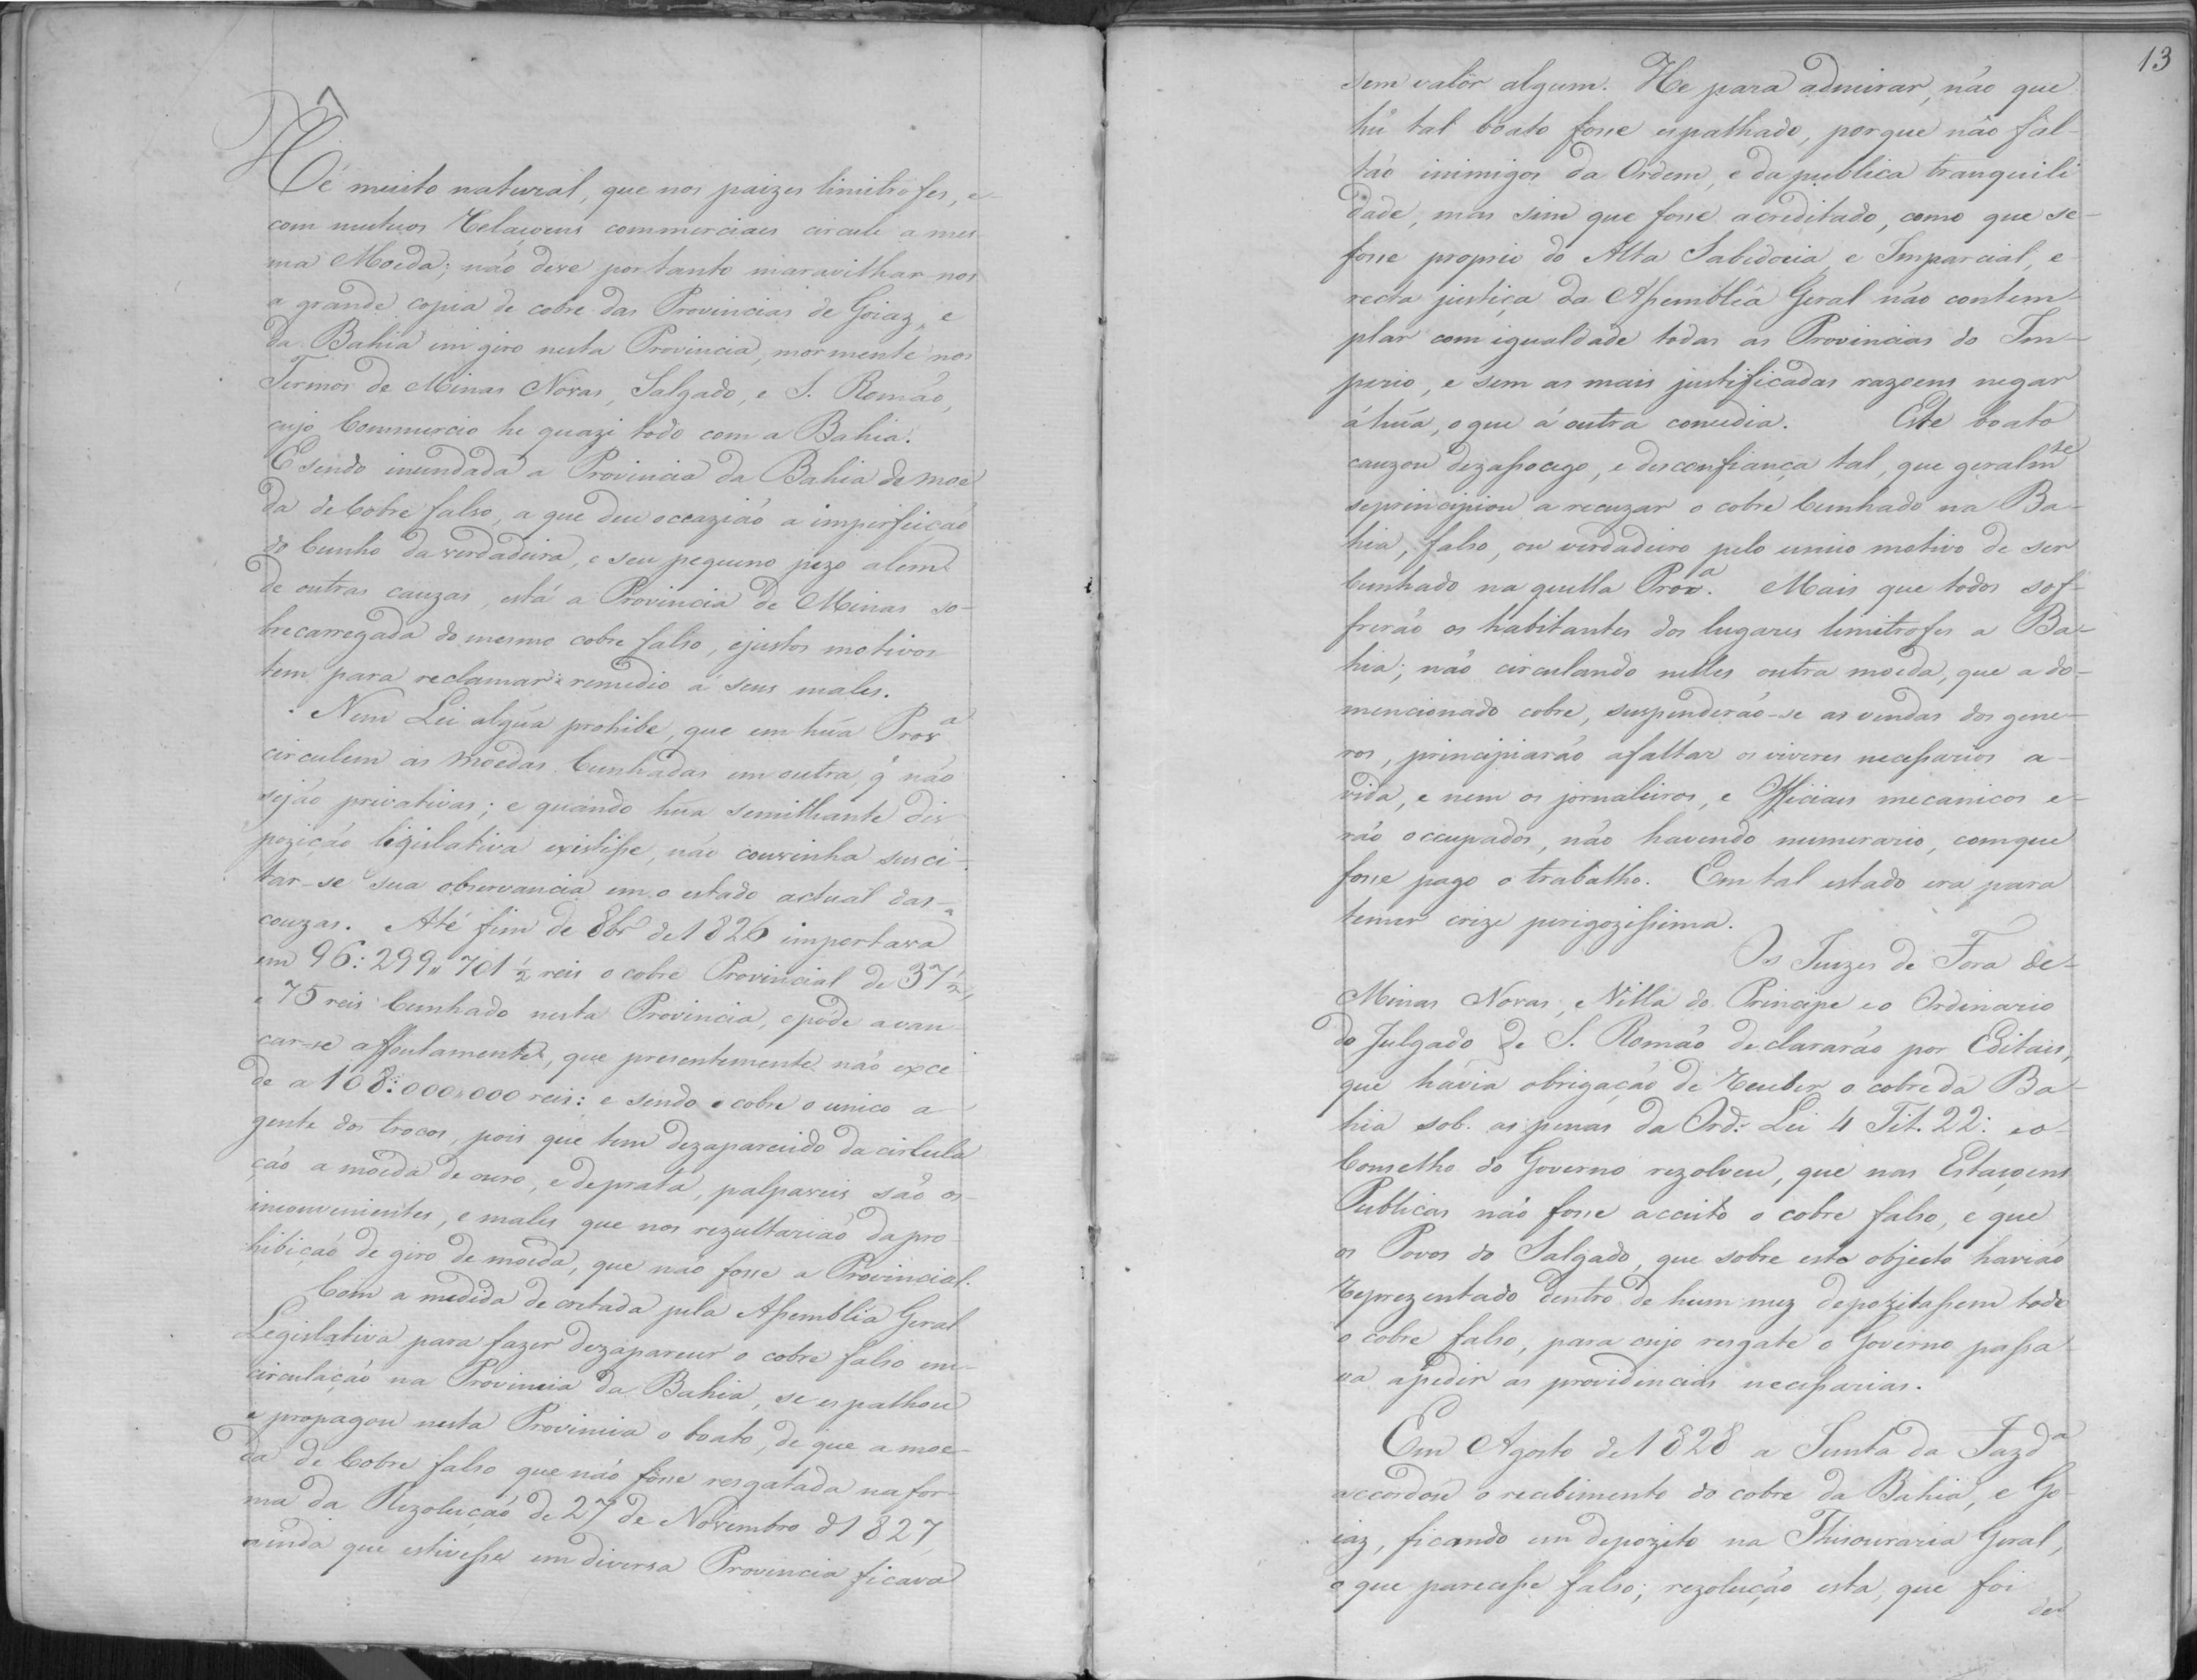 Hé muito natural, que nos paizes limitrofes, e
com mutuos Relaçoens commerciaes circule a mes
ma Moeda; não deve por tanto maravilhar-nos
a grande copia de cobre das Provincias de Goiaz, e
da Bahia em giro nesta Provincia, mormente nos
Termos de Minas Novas, Salgado, e S. Romão,
cujo Commercio he quazi todo com a Bahia.
E sendo inundada a Provincia da Bahia de moe
da de Cobre falso, a que deu occazião a imperfeição
do Cunho da verdadeira, e seu pequeno pezo alem
de outras cauzas, está a Provincia de Minas so-
brecarregada do mesmo cobre falso, e justos motivos
tem para reclamar remedio á seus males.
Nem Lei algũa prohibe, que em hũa Prova
circulem as moedas Cunhadas em outra, q̃ não
sejão privativas; e quando hũa semilhante dis
pozição legislativa existisse, não convinha susci-
tar-se sua observancia em o estado actual das
couzas. Até fim de 8br de 1826 importava
em 96:299"701 1/2 reis o cobre Provincial de 37 1/2,
e 75 reis Cunhado nesta Provincia, e póde avan
çar-se affoutamente, que presentemente não exce
de a 108:000"000 reis: e sendo o cobre o unico a
gente dos trocos, pois que tem dezaparecido da circula
ção a moeda de ouro, e de prata, palpaveis são os
inconvenientes, e males que nos rezultarião da pro
hibição de giro de moeda, que não fosse a Provincial.
Com a medida decretada pela Assemblea Geral
Legislativa para fazer dezaparecer o cobre falso em
circulação na Provincia da Bahia, se espalhou
e propagou nesta Provincia o boato, de que a moe-
da de Cobre falso que não fosse resgatada na for-
ma da Rezolução de 27 de Novembro d 1827,
ainda que estivesse em diversa Provincia ficava
13
sem valôr algum. He para admirar, não que
hũ tal boato fosse espalhado, porque não fal-
tão inimigos da Ordem, e da publica tranquili
dade, mas sim que fosse acreditado, como que se-
fosse proprio do Alta Sabedoria, e Imparcial, e
recta justiça da Assembléa Geral não contem-
plar com igualdade todas as Provincias do Im-
perio, e sem as mais justificadas razoens negar
á hũa, o que á outra concedia. Este boato
cauzou dezassocego, e desconfiança tal, que geralmte
se principiou a recuzar o cobre Cunhado na Ba-
hia, falso, ou verdadeiro pelo unico motivo de ser
Cunhado na quella Prova. Mais que todos sof-
frerão os habitantes dos lugares limitrofes a Ba-
hia; não circulando nelles outra moeda, que a do-
mencionado cobre, suspenderão-se as vendas dos gene-
ros, principiarão a faltar os viveres necessarios a-
vida, e nem os jornaleiros, e Officiaes mecanicos e-
rão occupados, não havendo numerario, com que
fosse pago o trabalho. Em tal estado era para
temer crize perigozissima.
Os Juizes de Fora de-
Minas Novas, e Villa do Principe e o Ordinario
do Julgado de S. Romão declararão por Editais,
que havia obrigação de Receber o cobre da Ba-
hia sob. as penas da Ord. Lei 4 Tit. 22: e o
Conselho do Governo rezolveu, que nas Estaçoens
Publicas não fosse acceito o cobre falso, e que
os Povos do Salgado, que sobre esta objecto havião
Reprezentado dentro de hum mez depozitassem todo
o cobre falso, para cujo resgate o Governo passa
va a pedir as providencias necessarias.
Em Agosto de 1828 a Junta da Fazda
accordou o recebimento do cobre da Bahia, e Go
iaz, ficando em depozito na Thisouraria Geral,
o que parecesse falso; rezolução esta, que foi
der